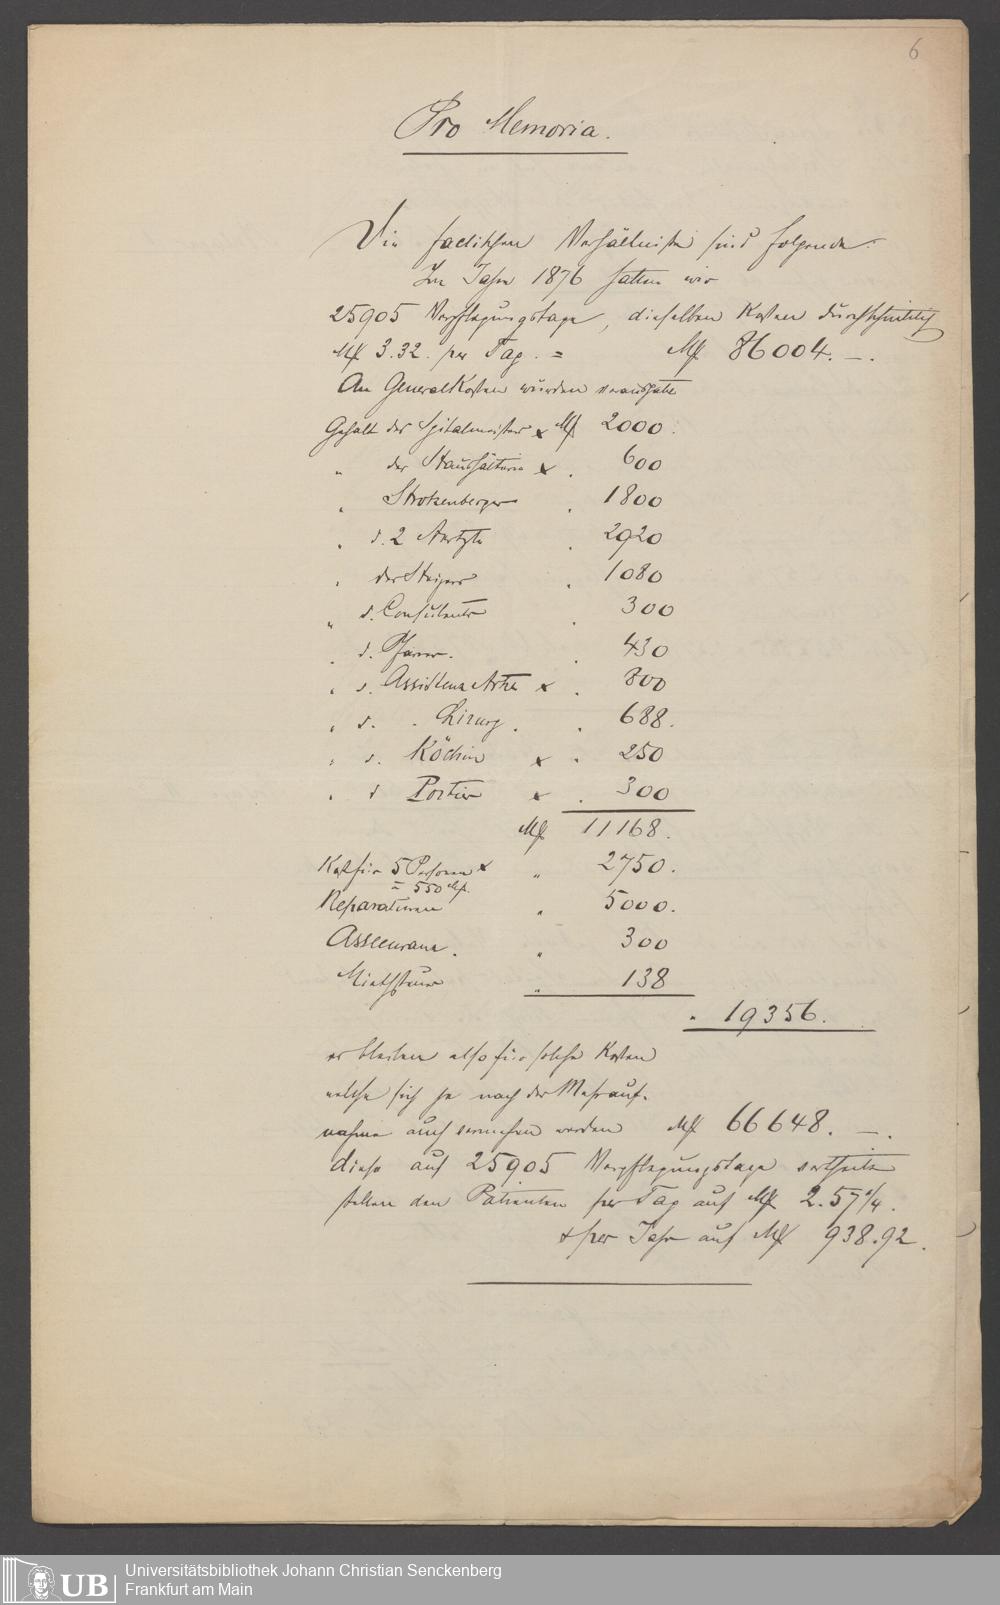 6
Pro Memoria.
Die factischen Verhältnisse sind folgende:
Im Jahre 1876 hatten wir
25905 Verpflegungstage, dieselben Kosten durchschnittlich
M 3.32. per Tag. = M 86004.—.
An GeneralKosten wurden verausgabt
Gehalt des Spitalmeisters x M 2000.
" der Haushälterin x . 600
" Strotzenberger . 1800
" d. 2 Aertzte . 2920
" des Steigers . 1080
" d. Consulenten . 300
" d. Pfarrer. . 430
" d. Assistenz Artzt x . 800
" d. " Chirurg . . 688.
" d. Köchin x . 250
" d Portier x . 300
M 11168.
Kost für 5 Personen x " 2750.
= 550 M.
Reparaturen " 5000.
Assecuranz. " 300
Miethsteuer " 138
" 19356.
es bleiben also für solche Kosten
welche sich je nach der Mehrauf-
nahme auch vermehren werden M 66648.—.
diese auf 25905 Verpflegungstage vertheilt
stellen den Patienten per Tag auf M 2.57 1/4.
& per Jahr auf M 938.92.
UB
Universitätsbibliothek Johann Christian Senckenberg
Frankfurt am Main